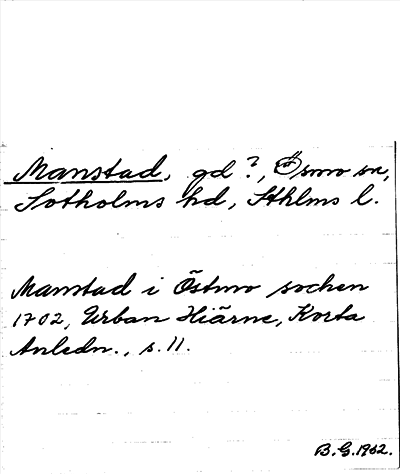 Manstad, gd ?, Ösmo sn,
Sotholms hd, Sthlms l.
Manstad i Östmo sochen
1702, Urban Hiärne, Korta
Anledn., s. 11.
B.G. 1962.